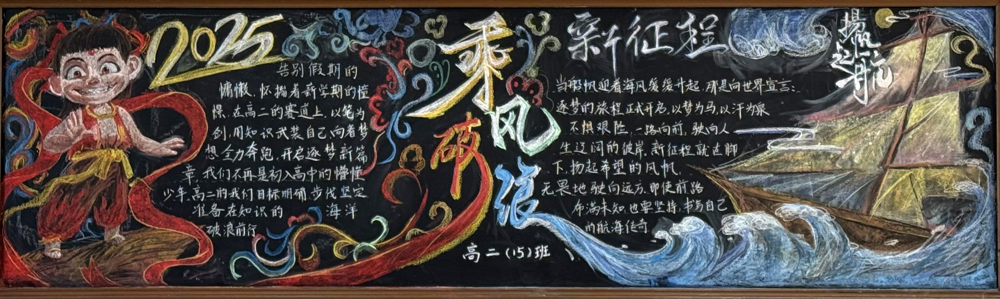 2025
告别假期的
慵懒,怀揣着新学期的憧
憬,在高二的赛道上,以笔为
剑,用知识武装自己向着梦
想全力奔跑,开启逐梦新篇
章,我们不再是初入高中的懵懂
少年,高二的我们目标明确步伐坚定
准备在知识的 海洋
破浪前行
乘风
破浪
高二(15)班
新征程
扬起航
当船帆迎着海风缓缓升起,那是向世界宣言:
逐梦的旅程正式开启,以梦为马,以汗为泉
不惧艰险,一路向前,驶向人
生辽阔的彼岸,新征程就这脚
下,扬起希望的风帆,
无畏地驶向远方,即使前路
布满未知,也要坚持,书写自己
的航海传奇